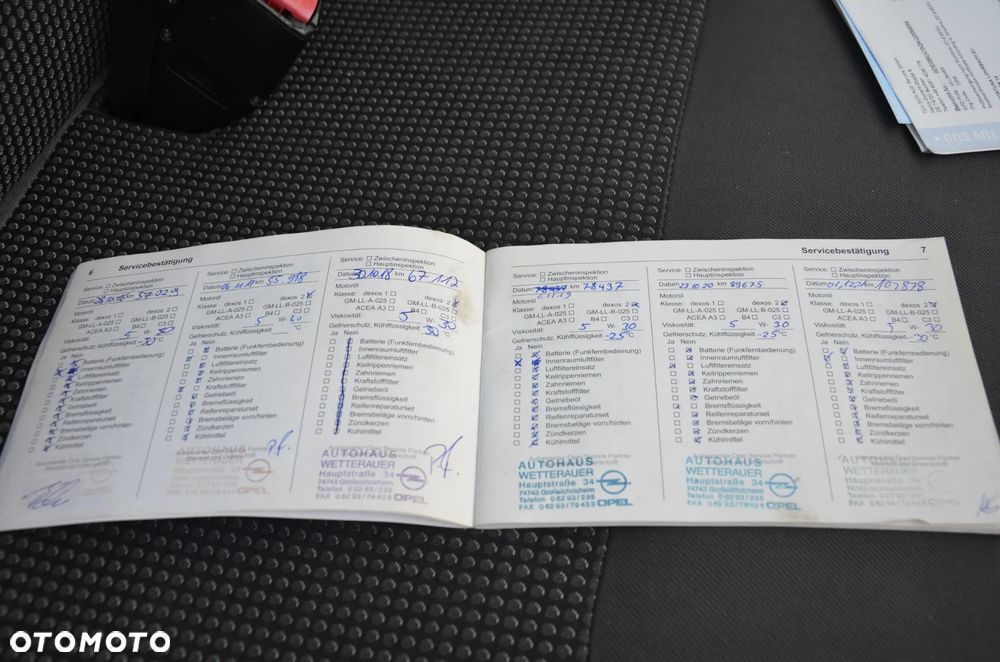 TÜV SÜD
6 Servicebestätigung
Service: Zwischeninspektion
Hauptinspektion
Datum km 57.029
Motoröl
Klasse: dexos 1 dexos 2
GM-LL-A-025 GM-LL-B-025
ACEA A3 B4 C3
Viskosität: 5 W- 30
Gefrierschutz, Kühlflüssigkeit -30 °C
Ja Nein
Batterie (Funkfernbedienung)
Innenraumluftfilter
Luftfiltereinsatz
Keilrippenriemen
Zahnriemen
Kraftstofffilter
Getriebeöl
Bremsflüssigkeit
Reifenreparaturset
Bremsbeläge vorn/hinten
Zündkerzen
Kühlmittel
Service: Zwischeninspektion
Hauptinspektion
Datum 06.11.17 km 55.988
Motoröl
Klasse: dexos 1 dexos 2
GM-LL-A-025 GM-LL-B-025
ACEA A3 B4 C3
Viskosität: 5 W- 30
Gefrierschutz, Kühlflüssigkeit °C
Ja Nein
Batterie (Funkfernbedienung)
Innenraumluftfilter
Luftfiltereinsatz
Keilrippenriemen
Zahnriemen
Kraftstofffilter
Getriebeöl
Bremsflüssigkeit
Reifenreparaturset
Bremsbeläge vorn/hinten
Zündkerzen
Kühlmittel
AUTOHAUS
WETTERAUER
Hauptstraße 34
OPEL
Service: Zwischeninspektion
Hauptinspektion
Datum 30.10.18 km 67.112
Motoröl
Klasse: dexos 1 dexos 2
GM-LL-A-025 GM-LL-B-025
ACEA A3 B4 C3
Viskosität: 5 W- 30
Gefrierschutz, Kühlflüssigkeit -30 °C
Ja Nein
Batterie (Funkfernbedienung)
Innenraumluftfilter
Luftfiltereinsatz
Keilrippenriemen
Zahnriemen
Kraftstofffilter
Getriebeöl
Bremsflüssigkeit
Reifenreparaturset
Bremsbeläge vorn/hinten
Zündkerzen
Kühlmittel
AUTOHAUS
WETTERAUER
Hauptstraße 34
74743 Großeicholzheim
Telefon 06293/285
FAX 06293/79439 OPEL
Servicebestätigung 7
Service: Zwischeninspektion
Hauptinspektion
Datum km 78437
5.11.19
Motoröl
Klasse: dexos 1 dexos 2
GM-LL-A-025 GM-LL-B-025
ACEA A3 B4 C3
Viskosität: 5 W- 30
Gefrierschutz, Kühlflüssigkeit -25 °C
Ja Nein
Batterie (Funkfernbedienung)
Innenraumluftfilter
Luftfiltereinsatz
Keilrippenriemen
Zahnriemen
Kraftstofffilter
Getriebeöl
Bremsflüssigkeit
Reifenreparaturset
Bremsbeläge vorn/hinten
Zündkerzen
Kühlmittel
AUTOHAUS
WETTERAUER
Hauptstraße 34
74743 Großeicholzheim
Telefon 06293/285
FAX 06293/79439 OPEL
Service: Zwischeninspektion
Hauptinspektion
Datum 27.10.20 km 89675
Motoröl
Klasse: dexos 1 dexos 2
GM-LL-A-025 GM-LL-B-025
ACEA A3 B4 C3
Viskosität: 5 W- 30
Gefrierschutz, Kühlflüssigkeit -25 °C
Ja Nein
Batterie (Funkfernbedienung)
Innenraumluftfilter
Luftfiltereinsatz
Keilrippenriemen
Zahnriemen
Kraftstofffilter
Getriebeöl
Bremsflüssigkeit
Reifenreparaturset
Bremsbeläge vorn/hinten
Zündkerzen
Kühlmittel
AUTOHAUS
WETTERAUER
Hauptstraße 34
74743 Großeicholzheim
Telefon 06293/285
FAX 06293/79439 OPEL
Service: Zwischeninspektion
Hauptinspektion
Datum km 107878
Motoröl
Klasse: dexos 1 dexos 2
GM-LL-A-025 GM-LL-B-025
ACEA A3 B4 C3
Viskosität: 5 W- 30
Gefrierschutz, Kühlflüssigkeit -30 °C
Ja Nein
Batterie (Funkfernbedienung)
Innenraumluftfilter
Luftfiltereinsatz
Keilrippenriemen
Zahnriemen
Kraftstofffilter
Getriebeöl
Bremsflüssigkeit
Reifenreparaturset
Bremsbeläge vorn/hinten
Zündkerzen
Kühlmittel
AUTOHAUS
WETTERAUER
Hauptstraße 34
OPEL
OTOMOTO